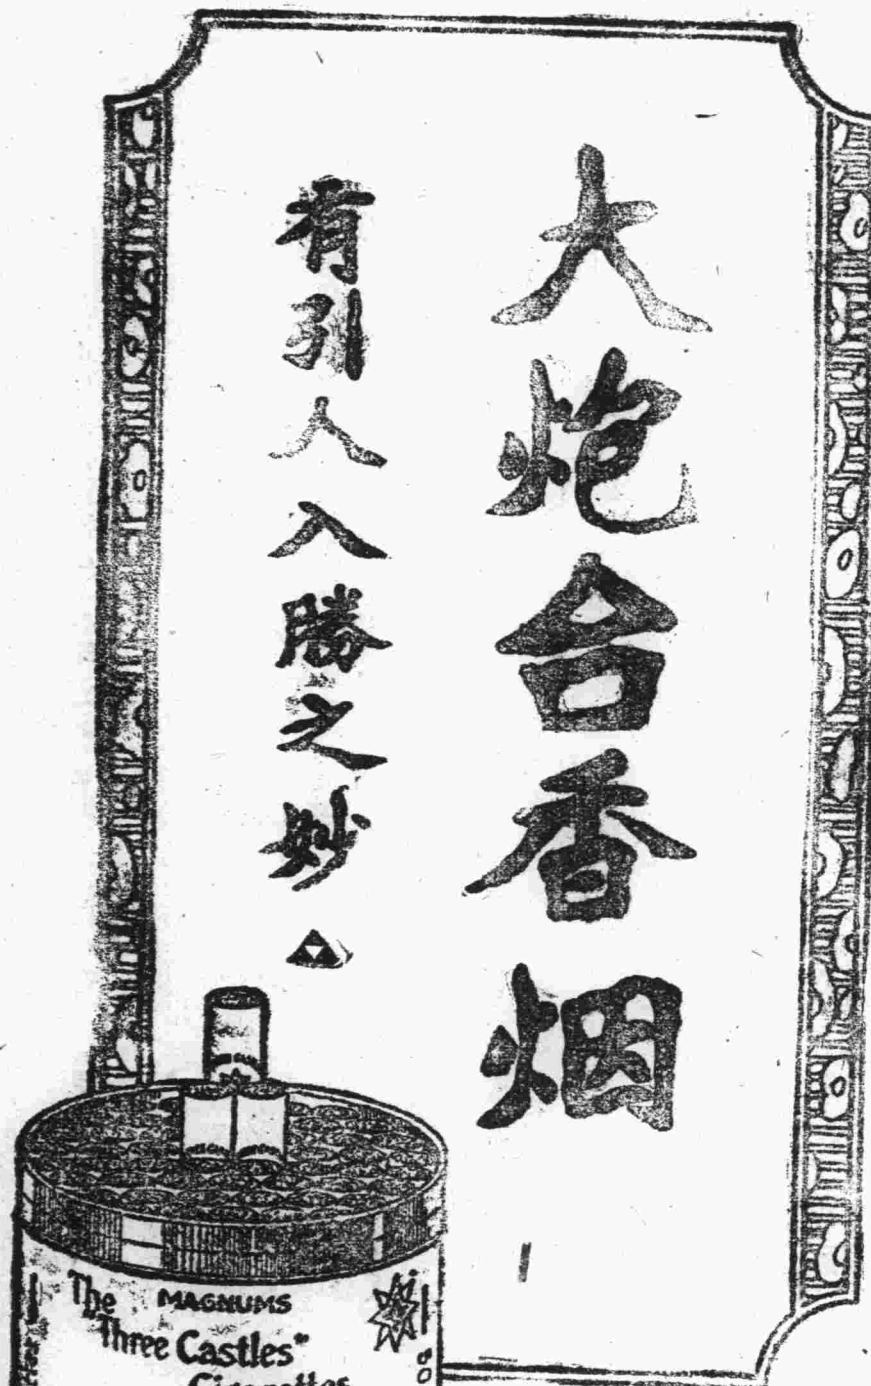 大炮台香烟
有引人入勝之妙
The MAGNUMS
Three Castles"
Cigarettes